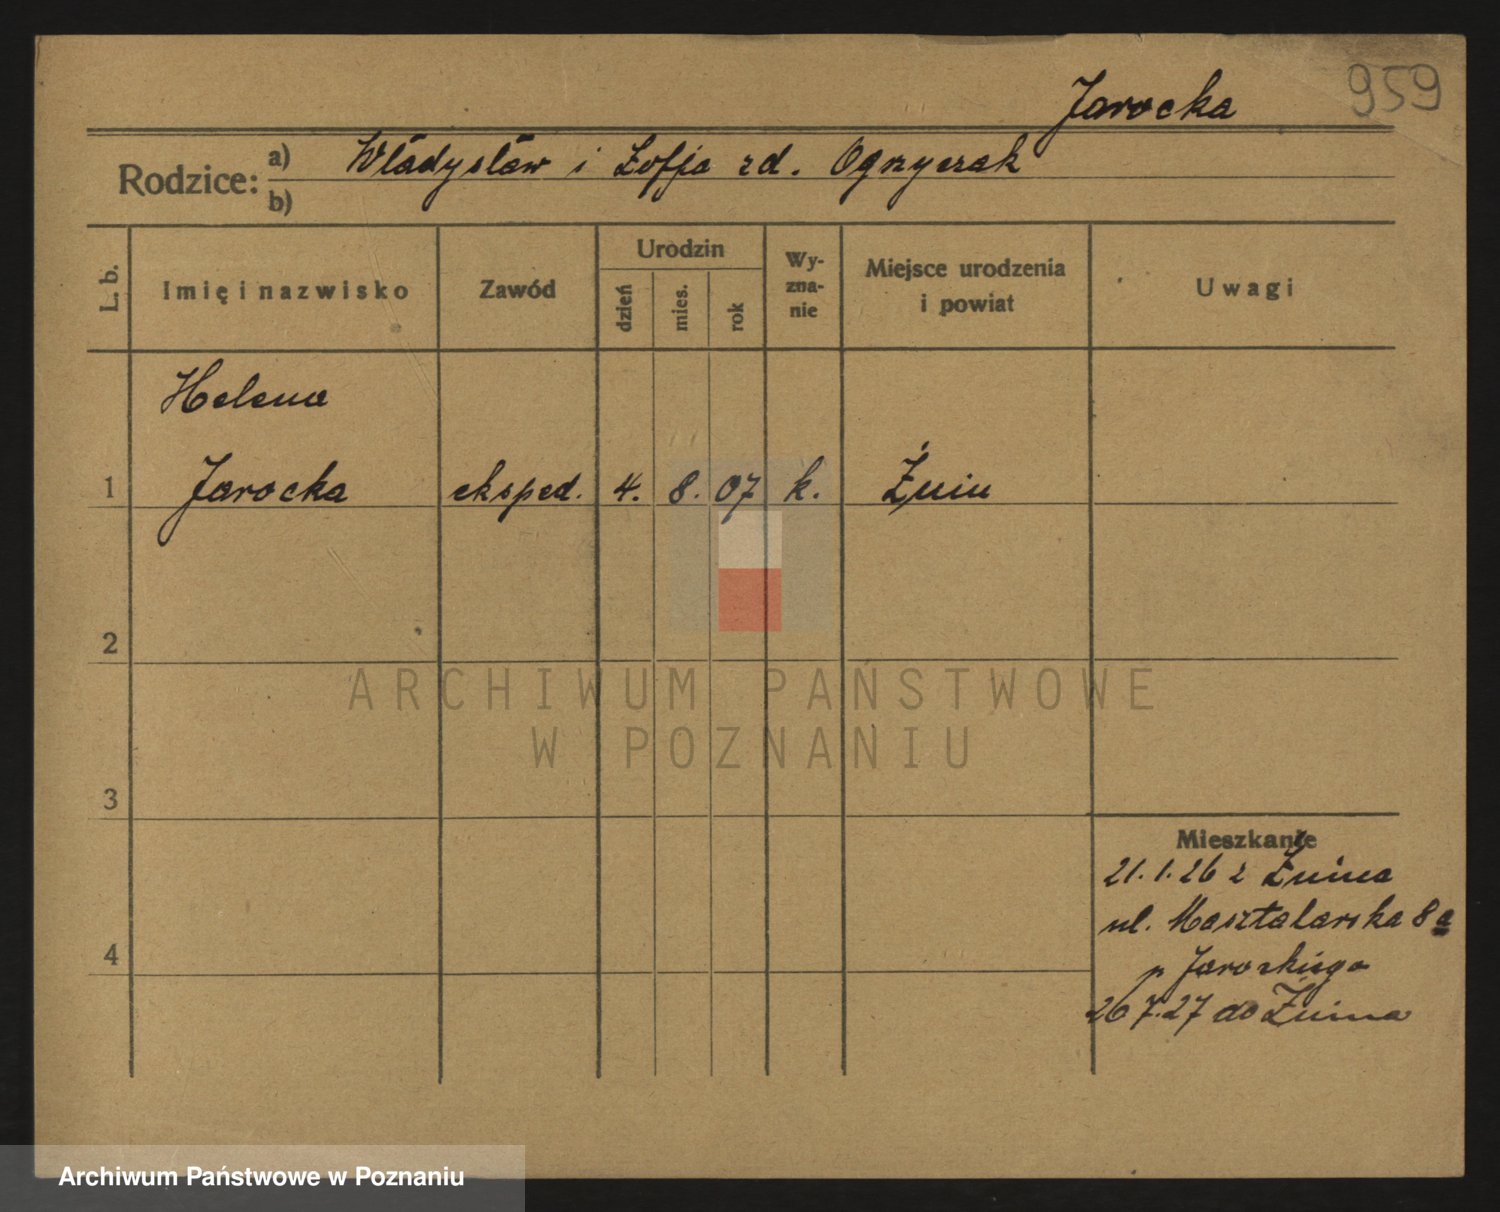 959
Jarocka
Rodzice: a) Władysław i Zofja zd. Ogrzyczak
b)
L. b.
Imię i nazwisko
Zawód
Urodzin
dzień
mies.
rok
Wy-
zna-
nie
Miejsce urodzenia
i powiat
Uwagi
Helena
1 Jarocka eksped. 4. 8. 07 k. Żnin
2
3
4
Mieszkanie
21.1.26 z Żnina
ul. Masztalarska 8a
p Jarockiego
26 7.27 do Żnina
ARCHIWUM PAŃSTWOWE
W POZNANIU
Archiwum Państwowe w Poznaniu